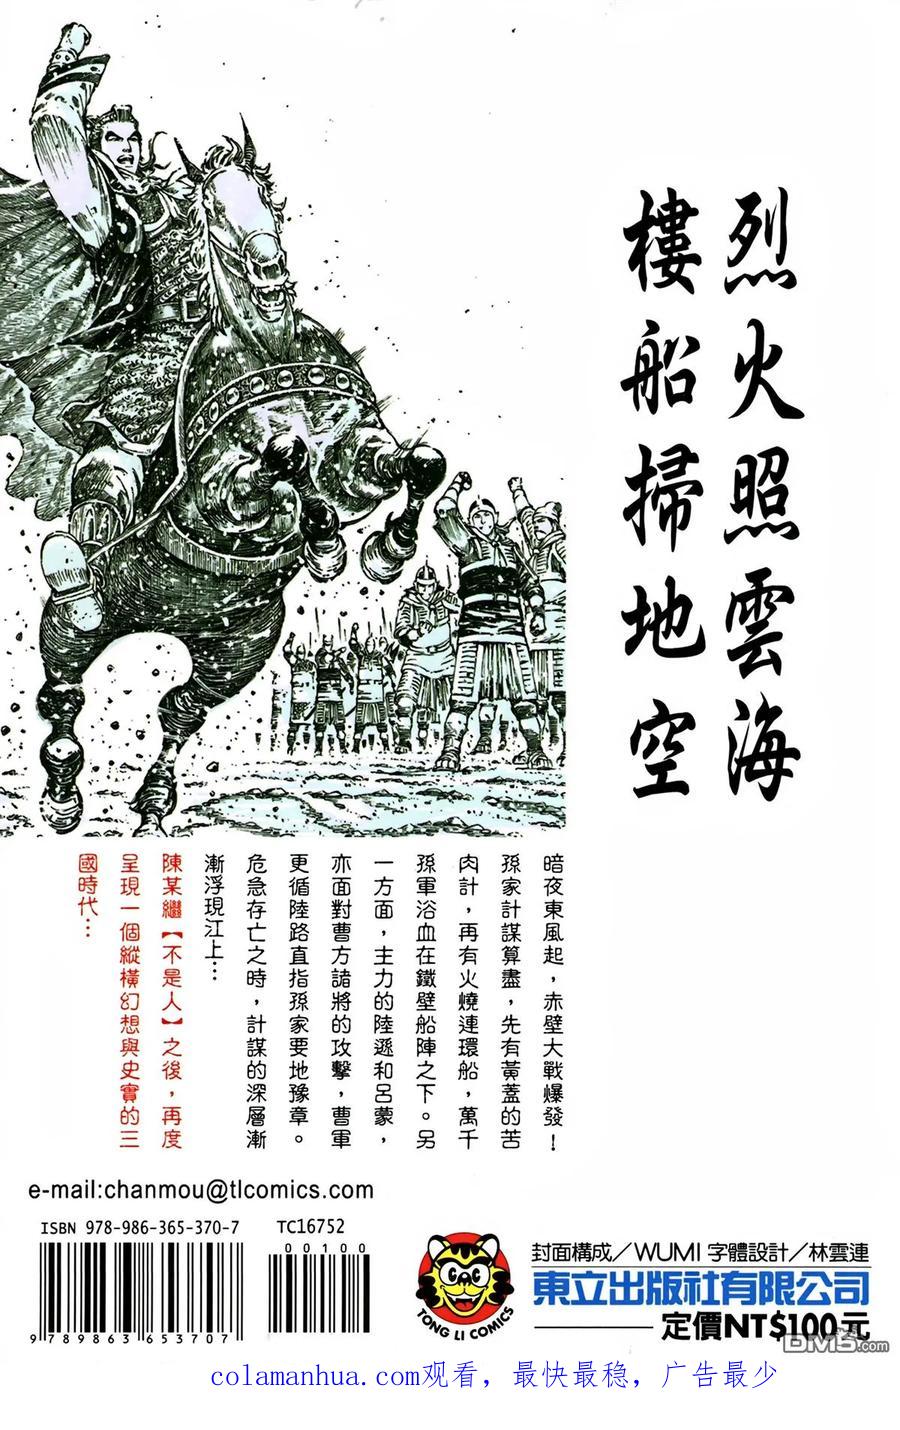 烈火照雲海
樓船掃地空
暗夜東風起，赤壁大戰爆發！
孫家計謀算盡，先有黃蓋的苦
肉計，再有火燒連環船，萬千
孫軍浴血在鐵壁船陣之下。另
一方面，主力的陸遜和呂蒙，
亦面對曹方諸將的攻擊，曹軍
更循陸路直指孫家要地豫章。
危急存亡之時，計謀的深層漸
漸浮現江上…
陳某繼【不是人】之後，再度
呈現一個縱橫幻想與史實的三
國時代…
e-mail:chanmou@tlcomics.com
ISBN 978-986-365-370-7
TC16752
00100
9 789863 653707
TONG LI COMICS
封面構成／WUMI 字體設計／林雲連
東立出版社有限公司
定價NT$100元
DM5.com
colamanhua.com观看，最快最稳，广告最少